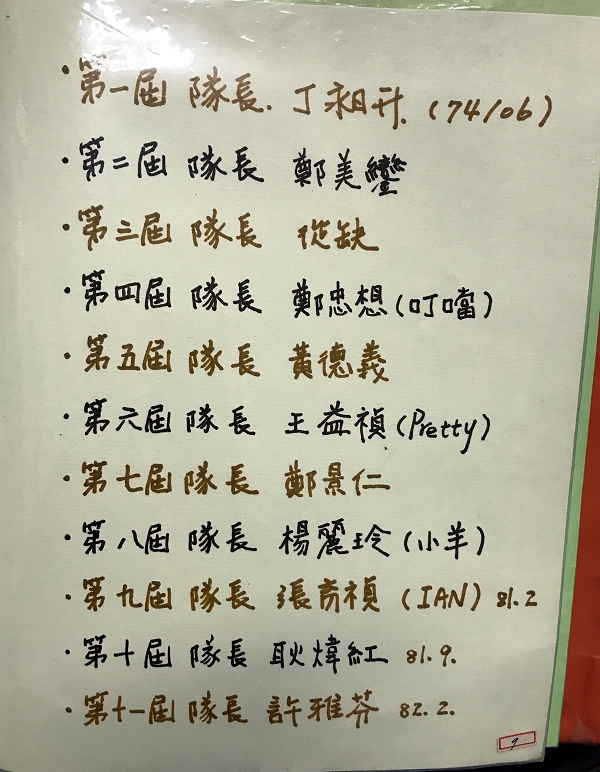 ·第一屆 隊長. 丁永昇. (74/06)
·第二屆 隊長 鄭美鑾
·第三屆 隊長 從缺
·第四屆 隊長 鄭忠想(叮噹)
·第五屆 隊長 黃德義
·第六屆 隊長 王益禎(Pretty)
·第七屆 隊長 鄭景仁
·第八屆 隊長 楊麗玲(小羊)
·第九屆 隊長 張育禎 (IAN) 81.2
·第十屆 隊長 耿煒紅 81.9.
·第十一屆 隊長 許雅芬 82.2.
9